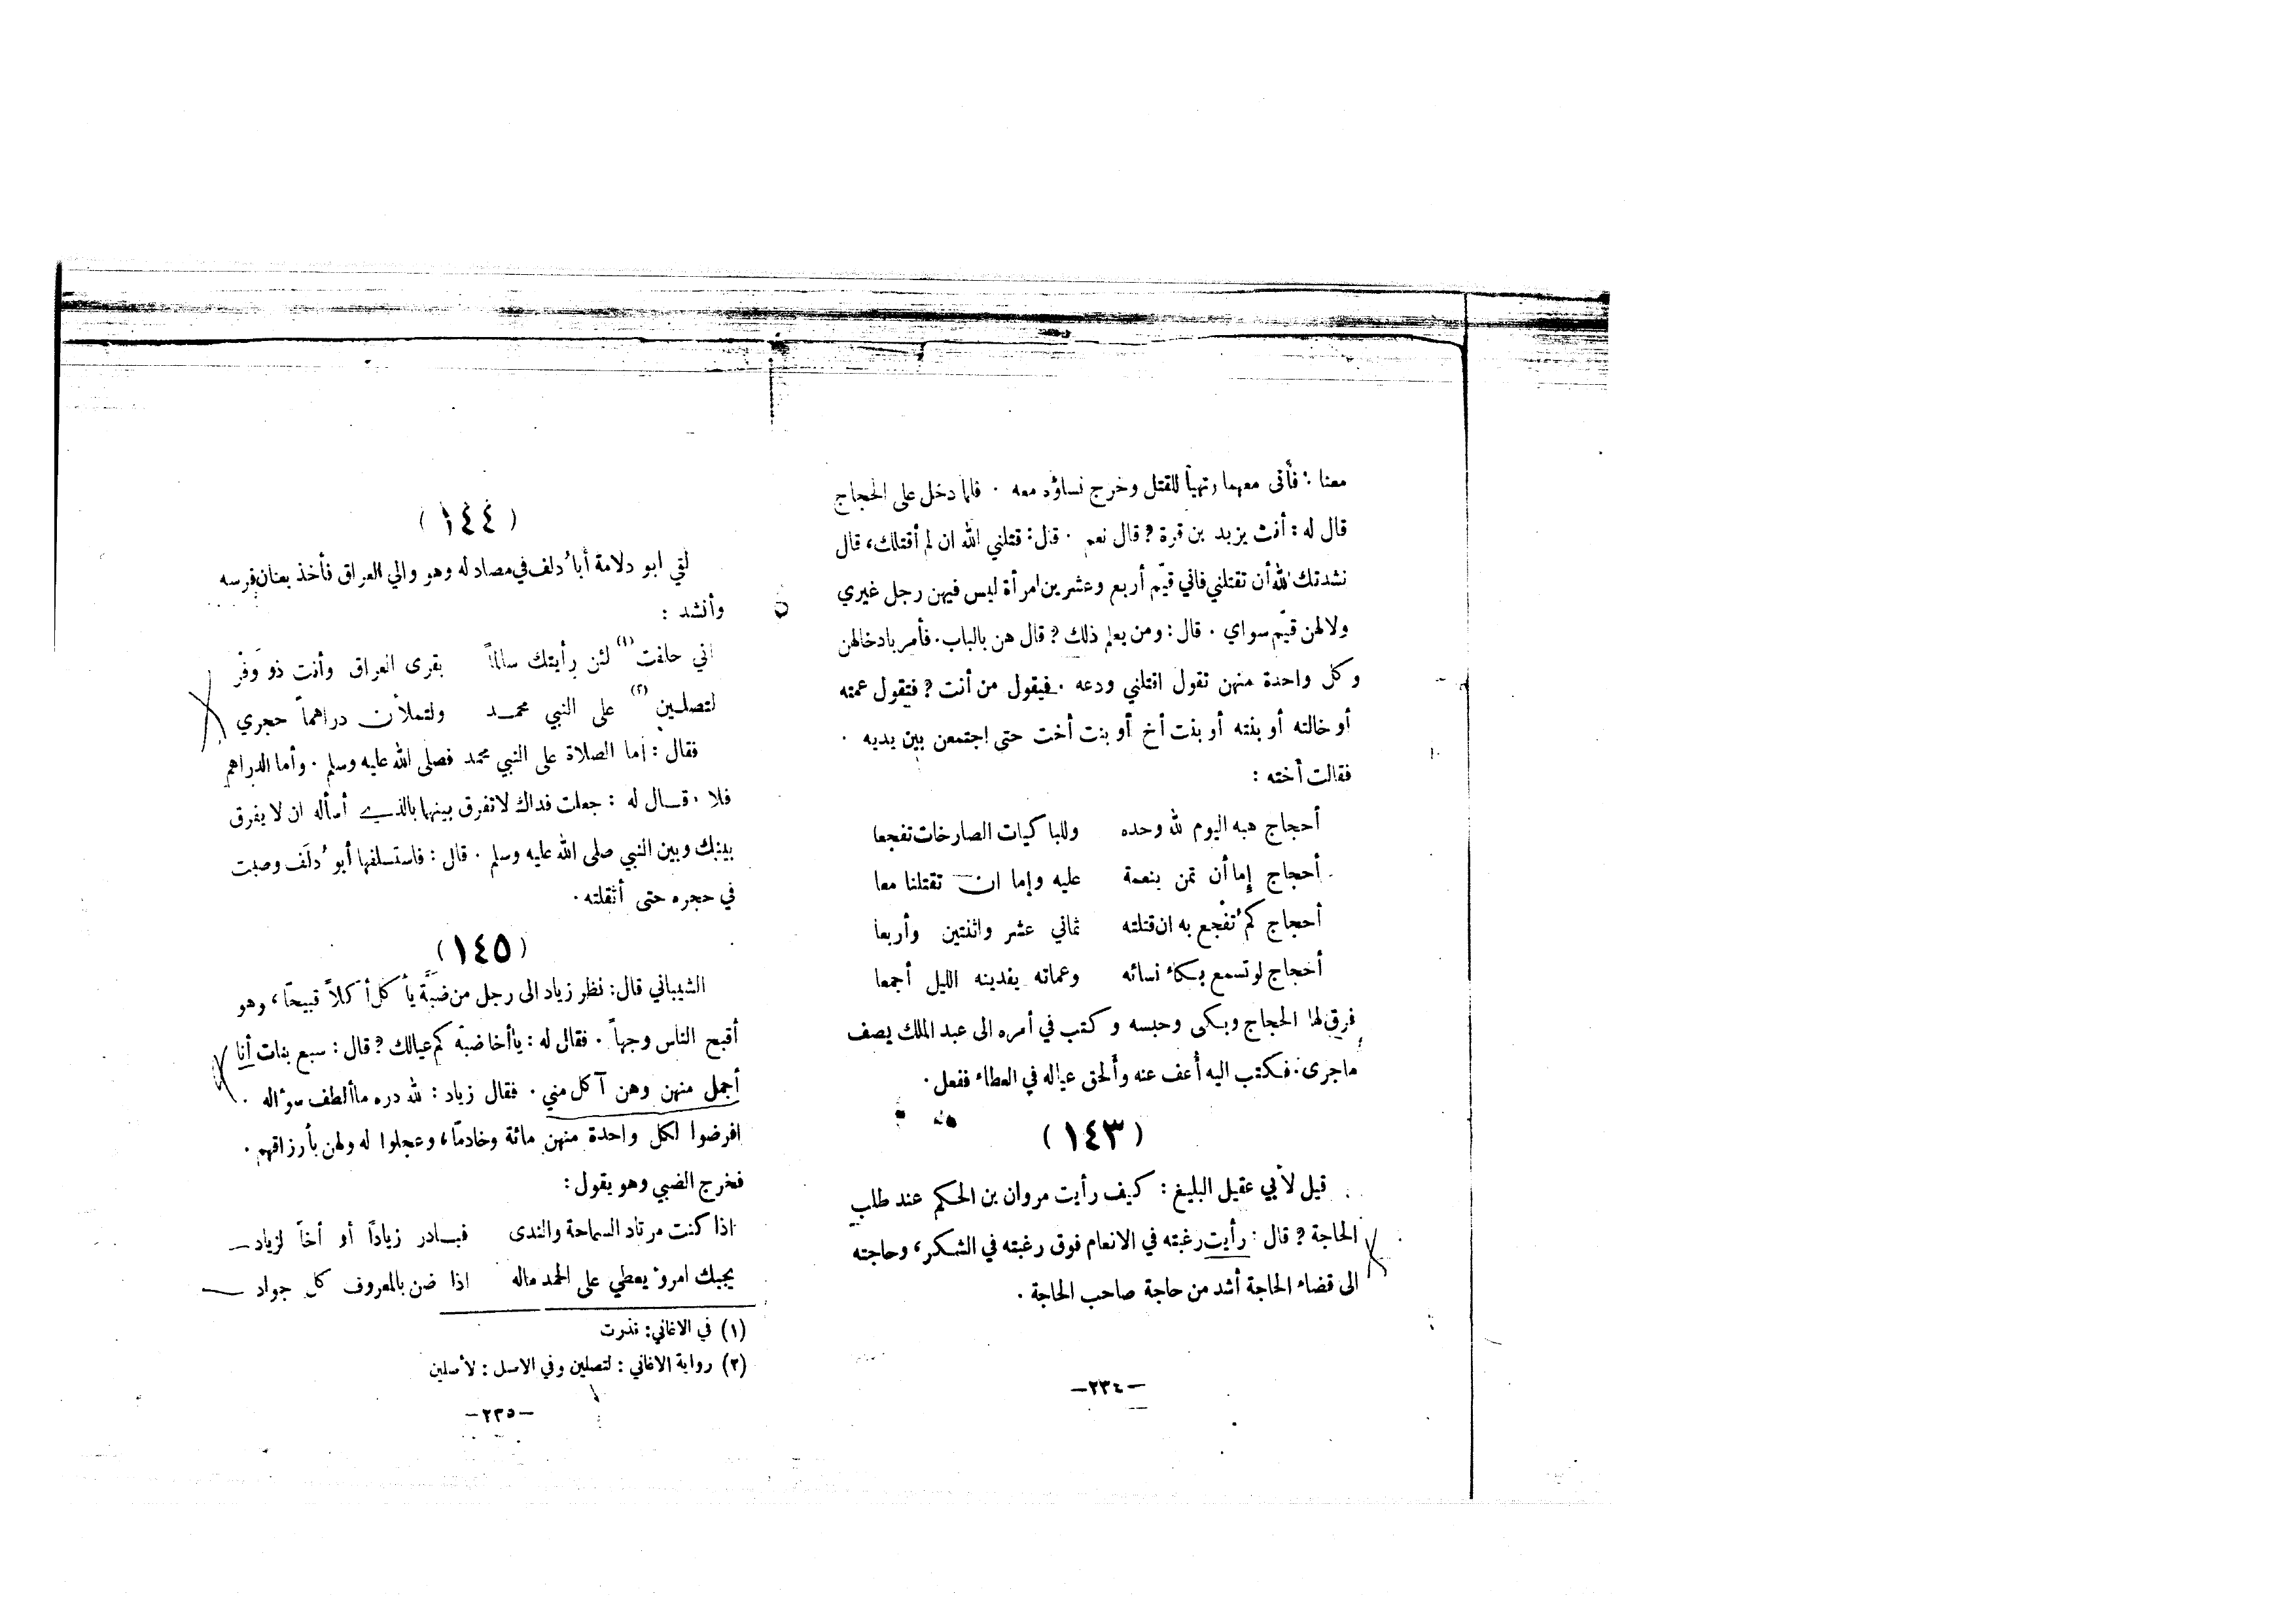 معنا : فأتى معهما رتهيأ للقتل وخرج نساؤه معه . فلما دخل على الحجاج
قال له : أنت يزيد بن قرة ? قال نعم . قال : قتلني الله ان لم أقتلك ، قال
نشدتك الله أن تقتلني فاني قيّم أربع وعشرين امرأة ليس فيهن رجل غيري
ولا لهن قيّم سواي . قال : ومن يعلم ذلك ? قال هن بالباب . فأمر بادخالهن
وكل واحدة منهن تقول اقتلني ودعه . فيقول من أنت ? فتقول عمته
أو خالته أو بنته أو بنت أخ أو بنت أخت حتى اجتمعن بين يديه .
فقالت أخته :
أحجاج هبه اليوم لله وحده وللباكيات الصارخات تفجعا
أحجاج إما أن تمن بنعمة عليه وإما ان تقتلنا معا
أحجاج كم تفجع به ان قتلته ثماني عشر واثنتين وأربعا
أحجاج لو تسمع بكاء نسائه وعماته يفدينه الليل أجمعا
فرق لها الحجاج وبكى وحبسه وكتب في أمره الى عبد الملك يصف
ماجرى : فكتب اليه أعف عنه وألحق عياله في العطاء ففعل .
( ١٤٣ )
قيل لأبي عقيل البليغ : كيف رأيت مروان بن الحكم عند طلب
الحاجة ? قال : رأيت رغبته في الانعام فوق رغبته في الشكر ، وحاجته
الى قضاء الحاجة أشد من حاجة صاحب الحاجة .
—٢٣٤—
( ١٤٤ )
لقي ابو دلامة أبا دلف في مصاد له وهو والي العراق فأخذ بعنان فرسه
وأنشد :
اني حلفت (١) لئن رأيتك سالماً بقرى العراق وأنت ذو وَفْر
لتصلين (٢) على النبي محمد ولتملأن دراهماً حجري
فقال : أما الصلاة على النبي محمد فصلى الله عليه وسلم . وأما الدراهم
فلا . قال له : جعلت فداك لا تفرق بينهما بالذي أسأله ان لا يفرق
بينك وبين النبي صلى الله عليه وسلم . قال : فاستسلفها أبو دلَف وصبت
في حجره حتى أثقلته .
( ١٤٥ )
الشيباني قال : نظر زياد الى رجل من ضبَّة يأكل أكلاً قبيحًا ، وهو
أقبح الناس وجهاً . فقال له : يا أخا ضبة كم عيالك ? قال : سبع بنات أنا
أجمل منهن وهن آكل مني . فقال زياد : لله دره ما ألطف سؤاله .
افرضوا لكل واحدة منهن مائة وخادمًا ، وعجلوا له ولهن بأرزاقهم .
فخرج الضبي وهو يقول :
اذا كنت مرتاد السماحة والندى فبادر زيادًا أو أخاً لزياد
يجبك امرؤ يعطي على الحمد ماله اذا ضن بالمعروف كل جواد
(١) في الاغاني : نذرت
(٢) رواية الاغاني : لتصلين وفي الاصل : لأصلين
—٢٣٥—